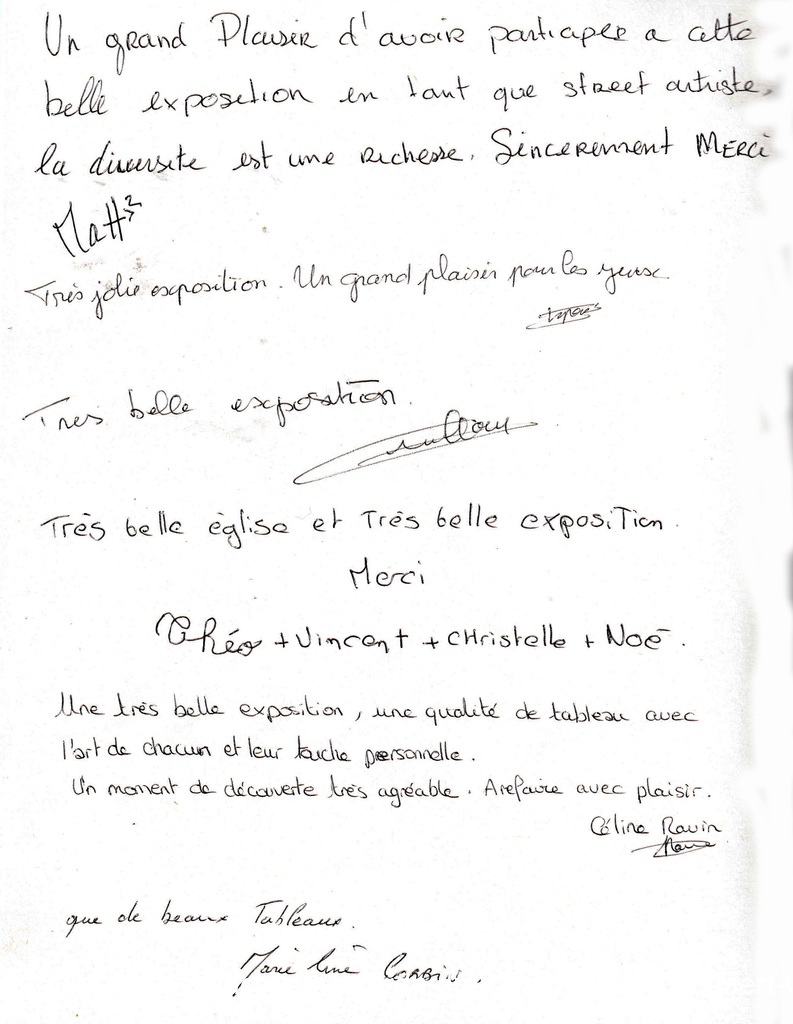 Un grand Plaisir d'avoir participer a cette
belle exposition en tant que street artiste,
la diversite est une richesse. Sincerement MERCi
Matt
Très jolie exposition. Un grand plaisir pour les yeux.
Tres belle exposition.
Très belle église et Très belle exposiTion.
Merci
Théo + Vincent + CHristelle + Noé.
Une très belle exposition, une qualité de tableau avec
l'art de chacun et leur touche personnelle.
Un moment de découverte très agréable. A refaire avec plaisir.
Céline Ravin
que de beaux Tableaux.
Marie Line CORBIN.